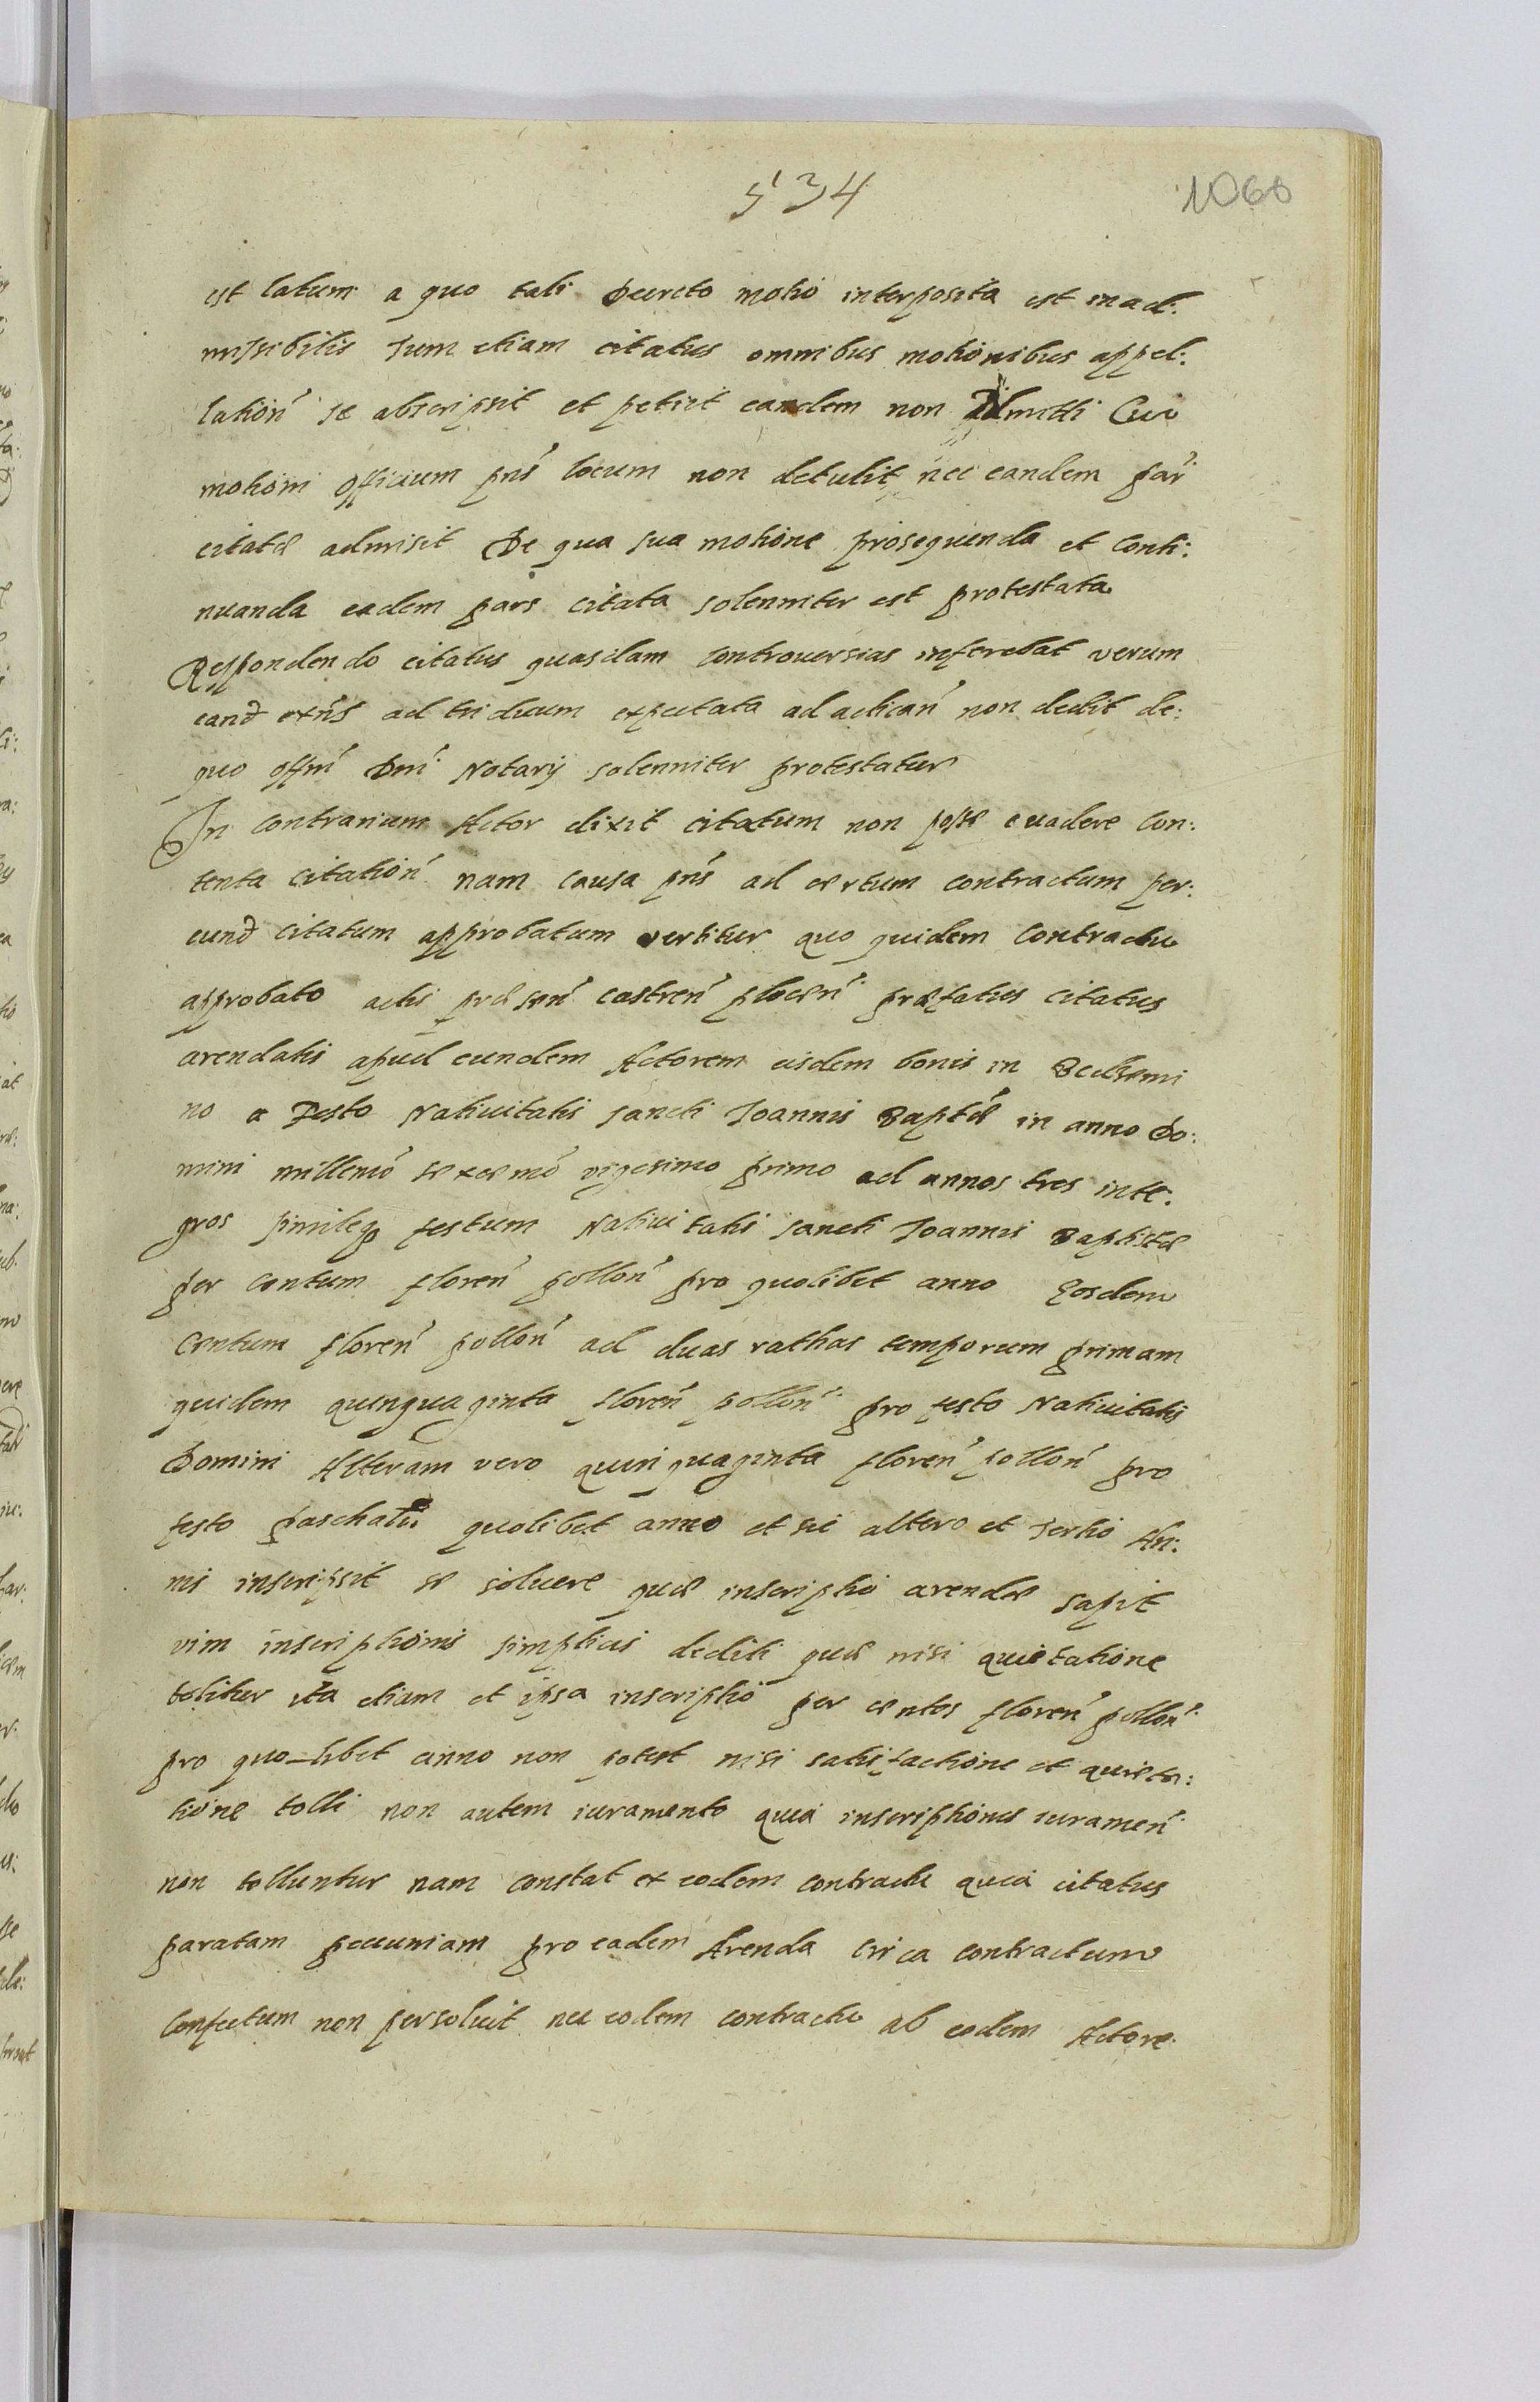 534
1066
est latum a quo tali Decreto motio interposita est inad:
missibilis Tum etiam citatus omnibus motionibus appel:
lation̄ se abscripsit et petiit eandem non admitti Cui
motioni officium pn̄s locum non detulit nec eandem par̄
citatæ admisit De qua sua motione prosequenda et Conti:
nuanda eadem pars citata solenniter est protestata
Respondendo citatus quasdam controuersias inferebat verum
eand ad triduum expectata ad actican̄ non dedit de:
quo offm̄ Dn̄i Notarij solenniter protestatur
In contrarium Actor dixit citatum non posse euadere Con:
tenta citation̄ nam causa pn̄s ad certum contractum per:
eund citatum approbatum vertitur quo quidem Contractu
approbato actis præsen̄ castren̄ plocen̄ præfatus citatus
arendatis apud eundem Actorem eisdem bonis in
no a Festo Natiuitatis sancti Joannis Baptæ in anno Do:
mini millemo sexcemo vigesimo primo ad annos tres inte:
gros simileq festum Natiuitatis sancti Joannis Baptistæ
per centum floren̄ pollon̄ pro quolibet anno Eosdem
Centum floren̄ pollon̄ ad duas rathas temporum primam
quidem quinquaginta floren̄ pollon̄ pro festo Natiuitatis
Domini Alteram vero quinquaginta floren̄ pollon̄ pro
festo paschatis quolibet anno et sic altero et tertio An:
nis inscripsit se soluere quæ inscriptio arendæ sapit
vim inscriptionis simplicis debiti quæ nisi quietatione
tolitur ita etiam et ipsa inscriptio per centos floren̄ pollon̄
pro quo-libet anno non potest nisi satisfactione et quieta:
tione tolli non autem iuramento quia inscriptiones iuramen̄
non tolluntur nam constat ex eodem contractu quia citatus
paratam pecuniam pro eadem Arenda circa contractum
Confectum non persoluit nec eodem contractu ab eodem Actore